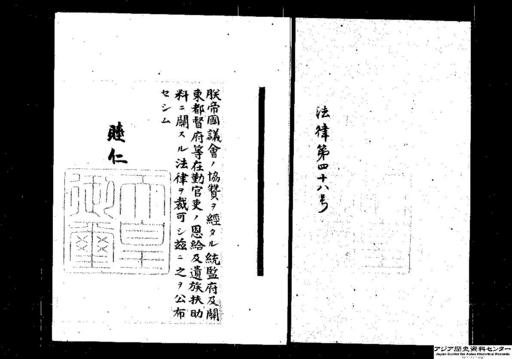 法律第四十八号
朕帝國議會ノ協賛ヲ經タル統監府及關
東都督府等在勤官吏ノ恩給及遺族扶助
料ニ關スル法律ヲ裁可シ茲ニ之ヲ公布
セシム
睦仁
天皇
御璽
アジア歴史資料センター
Japan Center for Asian Historical Records